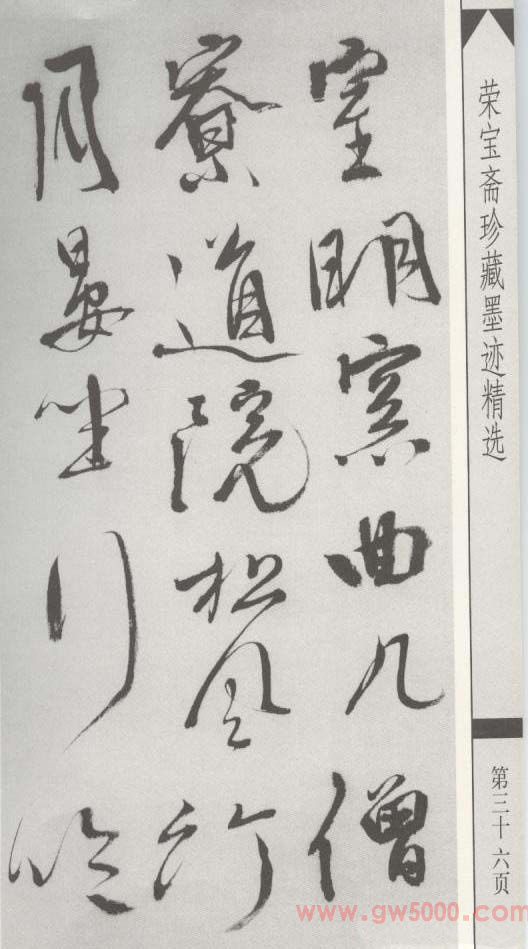 荣宝斋珍藏墨迹精选
第三十六页
室明窗曲几僧
寮道院松風竹
月晏坐行吟
www.gw5000.com